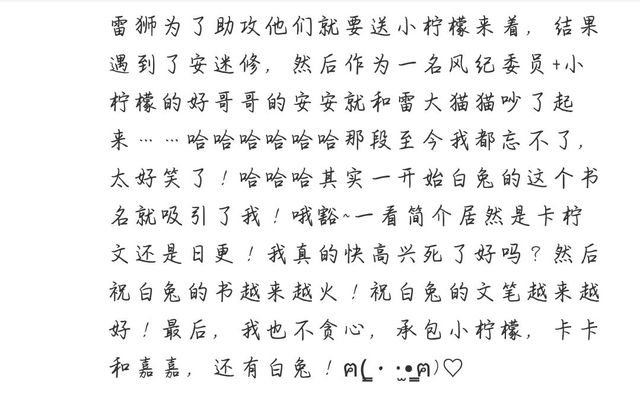 雷狮为了助攻他们就要送小柠檬来着，结果
遇到了安迷修，然后作为一名风纪委员+小
柠檬的好哥哥的安安就和雷大猫猫吵了起
来……哈哈哈哈哈哈那段至今我都忘不了，
太好笑了！哈哈哈其实一开始白兔的这个书
名就吸引了我！哦豁~一看简介居然是卡柠
文还是日更！我真的快高兴死了好吗？然后
祝白兔的书越来越火！祝白兔的文笔越来越
好！最后，我也不贪心，承包小柠檬，卡卡
和嘉嘉，还有白兔！ฅ(̳•·̫•̳ฅ)♡